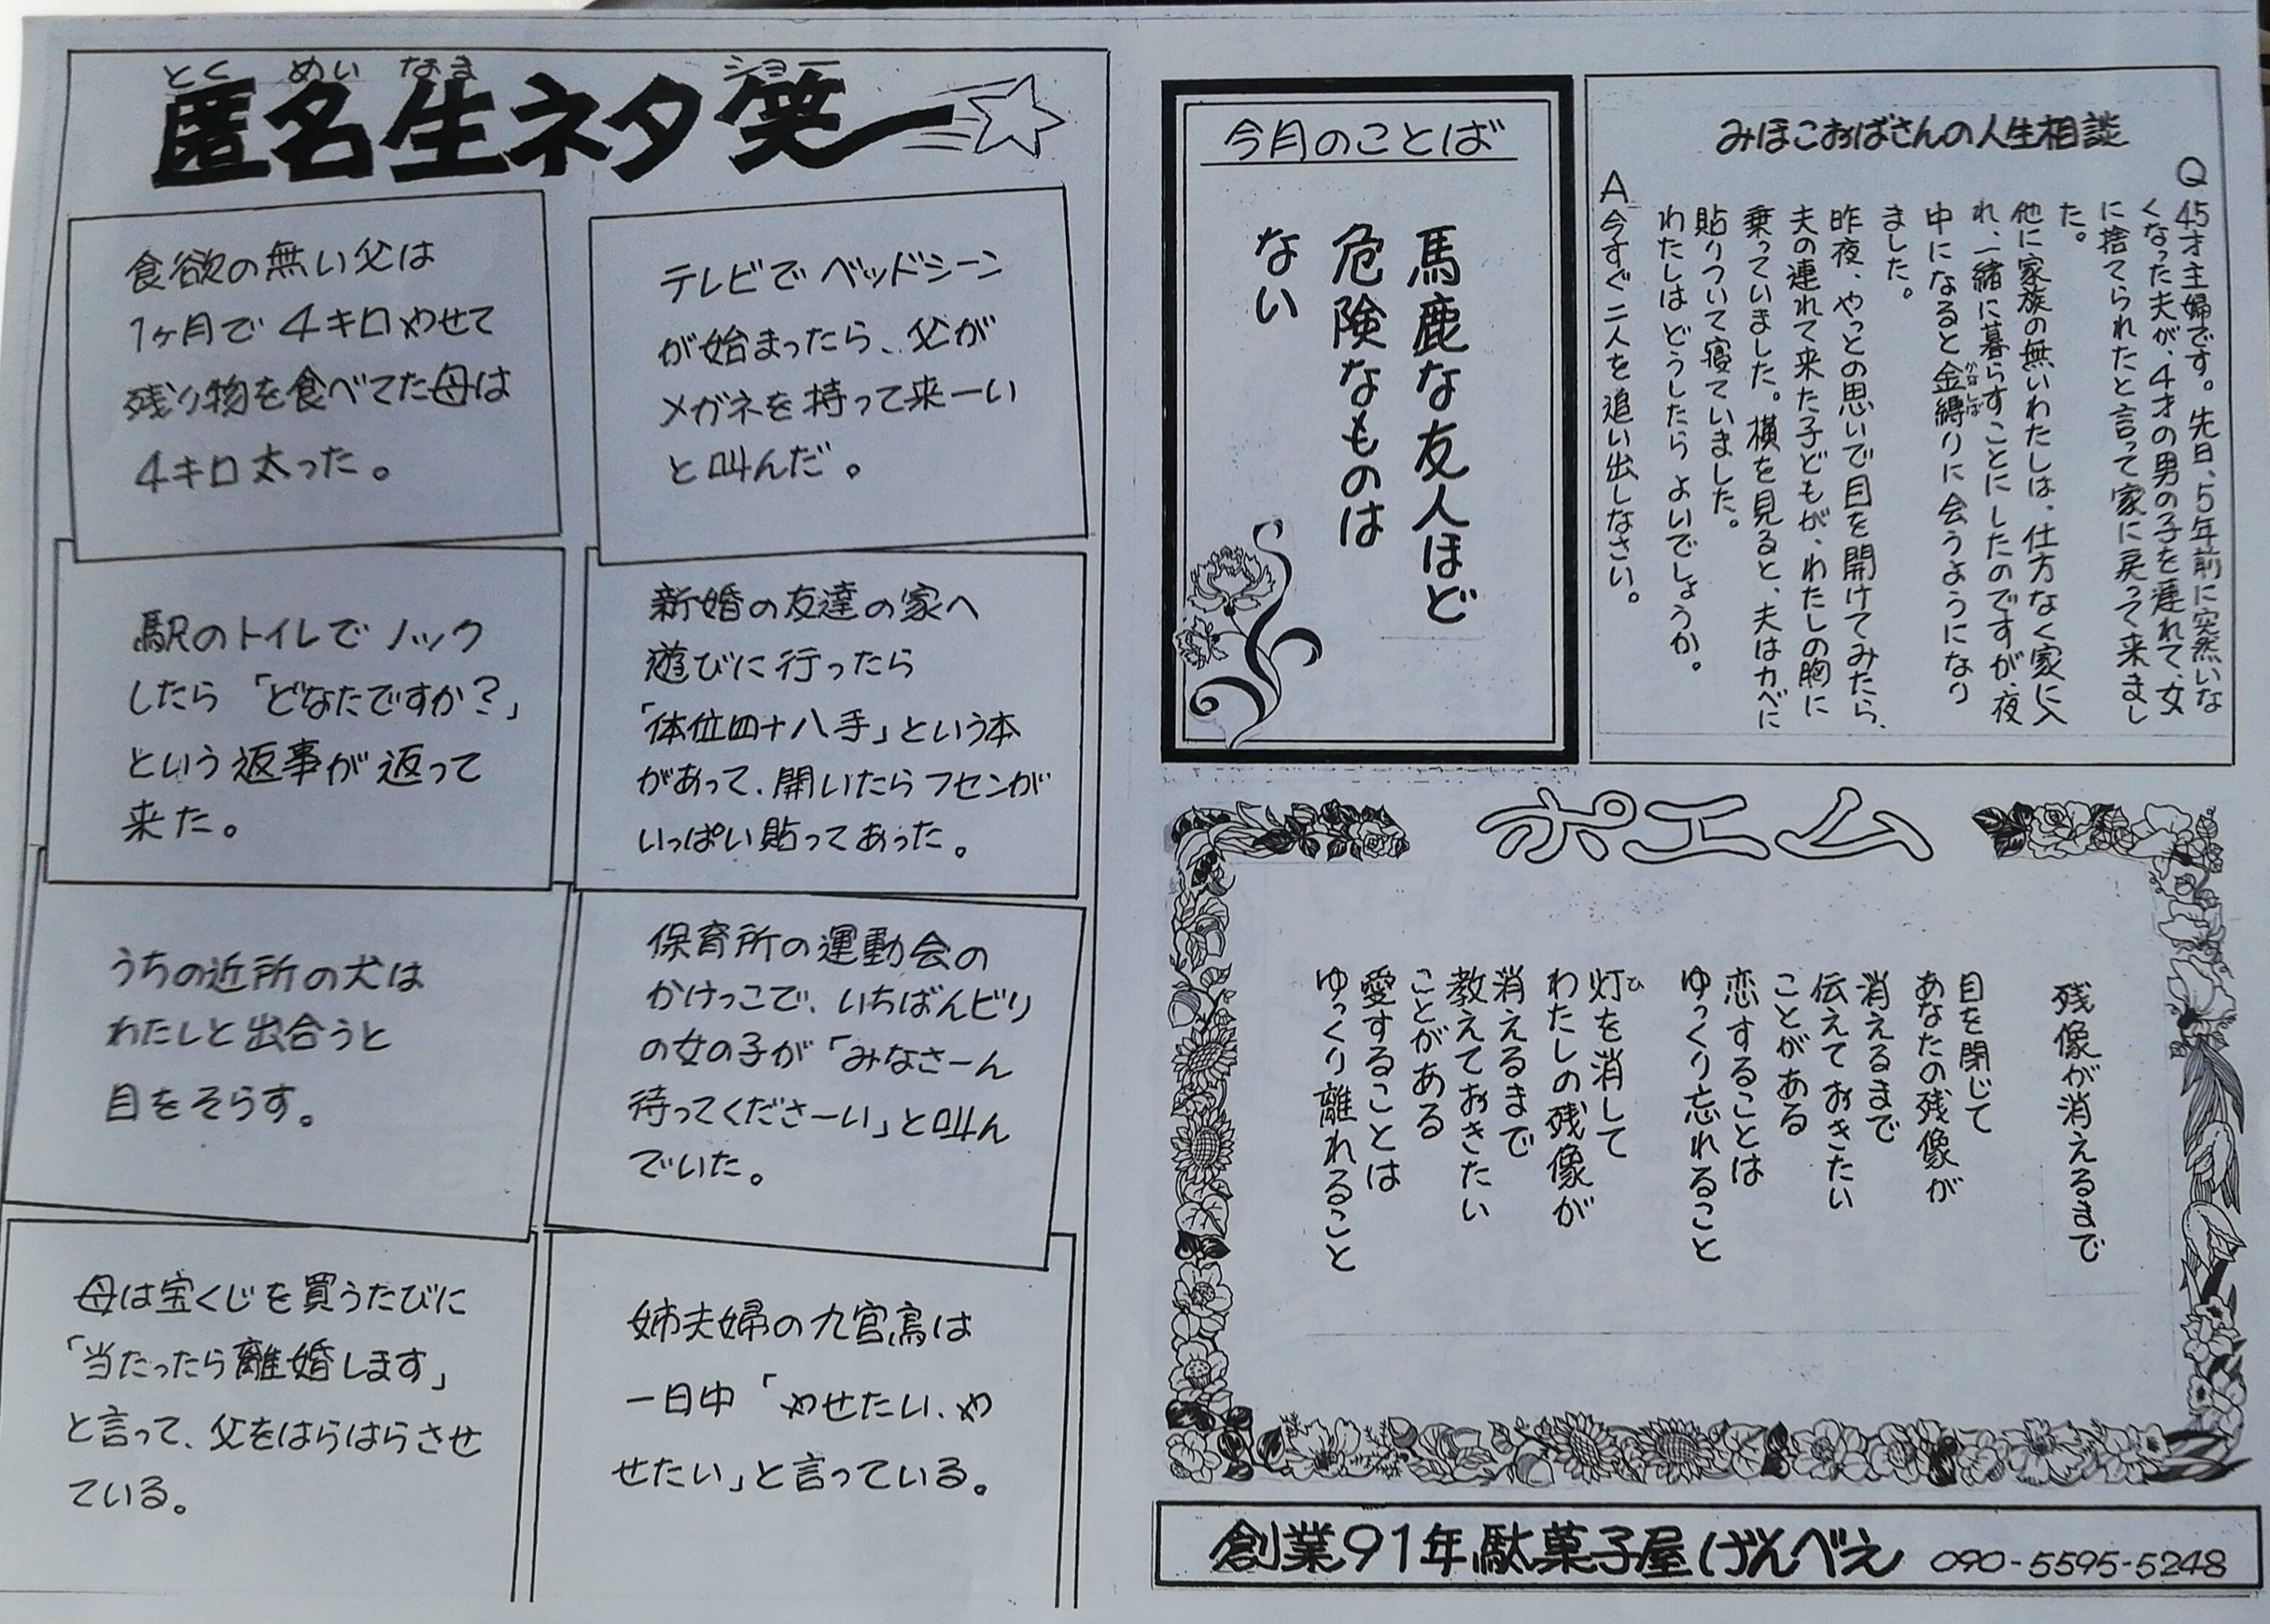 匿名生ネタ笑ー
とく めい なま ショー
食欲の無い父は
1ヶ月で4キロやせて
残り物を食べてた母は
4キロ太った。
テレビでベッドシーン
が始まったら、父が
メガネを持って来ーい
と叫んだ。
駅のトイレでノック
したら「どなたですか？」
という返事が返って
来た。
新婚の友達の家へ
遊びに行ったら
「体位四十八手」という本
があって、開いたらフセンが
いっぱい貼ってあった。
うちの近所の犬は
わたしと出合うと
目をそらす。
保育所の運動会の
かけっこで、いちばんビリ
の女の子が「みなさーん
待ってくださーい」と叫ん
でいた。
母は宝くじを買うたびに
「当たったら離婚します」
と言って、父をはらはらさせ
ている。
姉夫婦の九官鳥は
一日中「やせたい、や
せたい」と言っている。
今月のことば
馬鹿な友人ほど
危険なものは
ない
みほこおばさんの人生相談
Q 45才主婦です。先日、5年前に突然いな
くなった夫が、4才の男の子を連れて、女
に捨てられたと言って家に戻って来まし
た。
他に家族の無いわたしは、仕方なく家に入
れ、一緒に暮らすことにしたのですが、夜
中になると金縛りに会うようになり
かなしば
ました。
昨夜、やっとの思いで目を開けてみたら、
夫の連れて来た子どもが、わたしの胸に
乗っていました。横を見ると、夫はカベに
貼りついて寝ていました。
わたしはどうしたらよいでしょうか。
A 今すぐ二人を追い出しなさい。
ポエム
残像が消えるまで
目を閉じて
あなたの残像が
消えるまで
伝えておきたい
ことがある
恋することは
ゆっくり忘れること
灯を消して
ひ
わたしの残像が
消えるまで
教えておきたい
ことがある
愛することは
ゆっくり離れること
創業91年駄菓子屋げんべえ 090-5595-5248